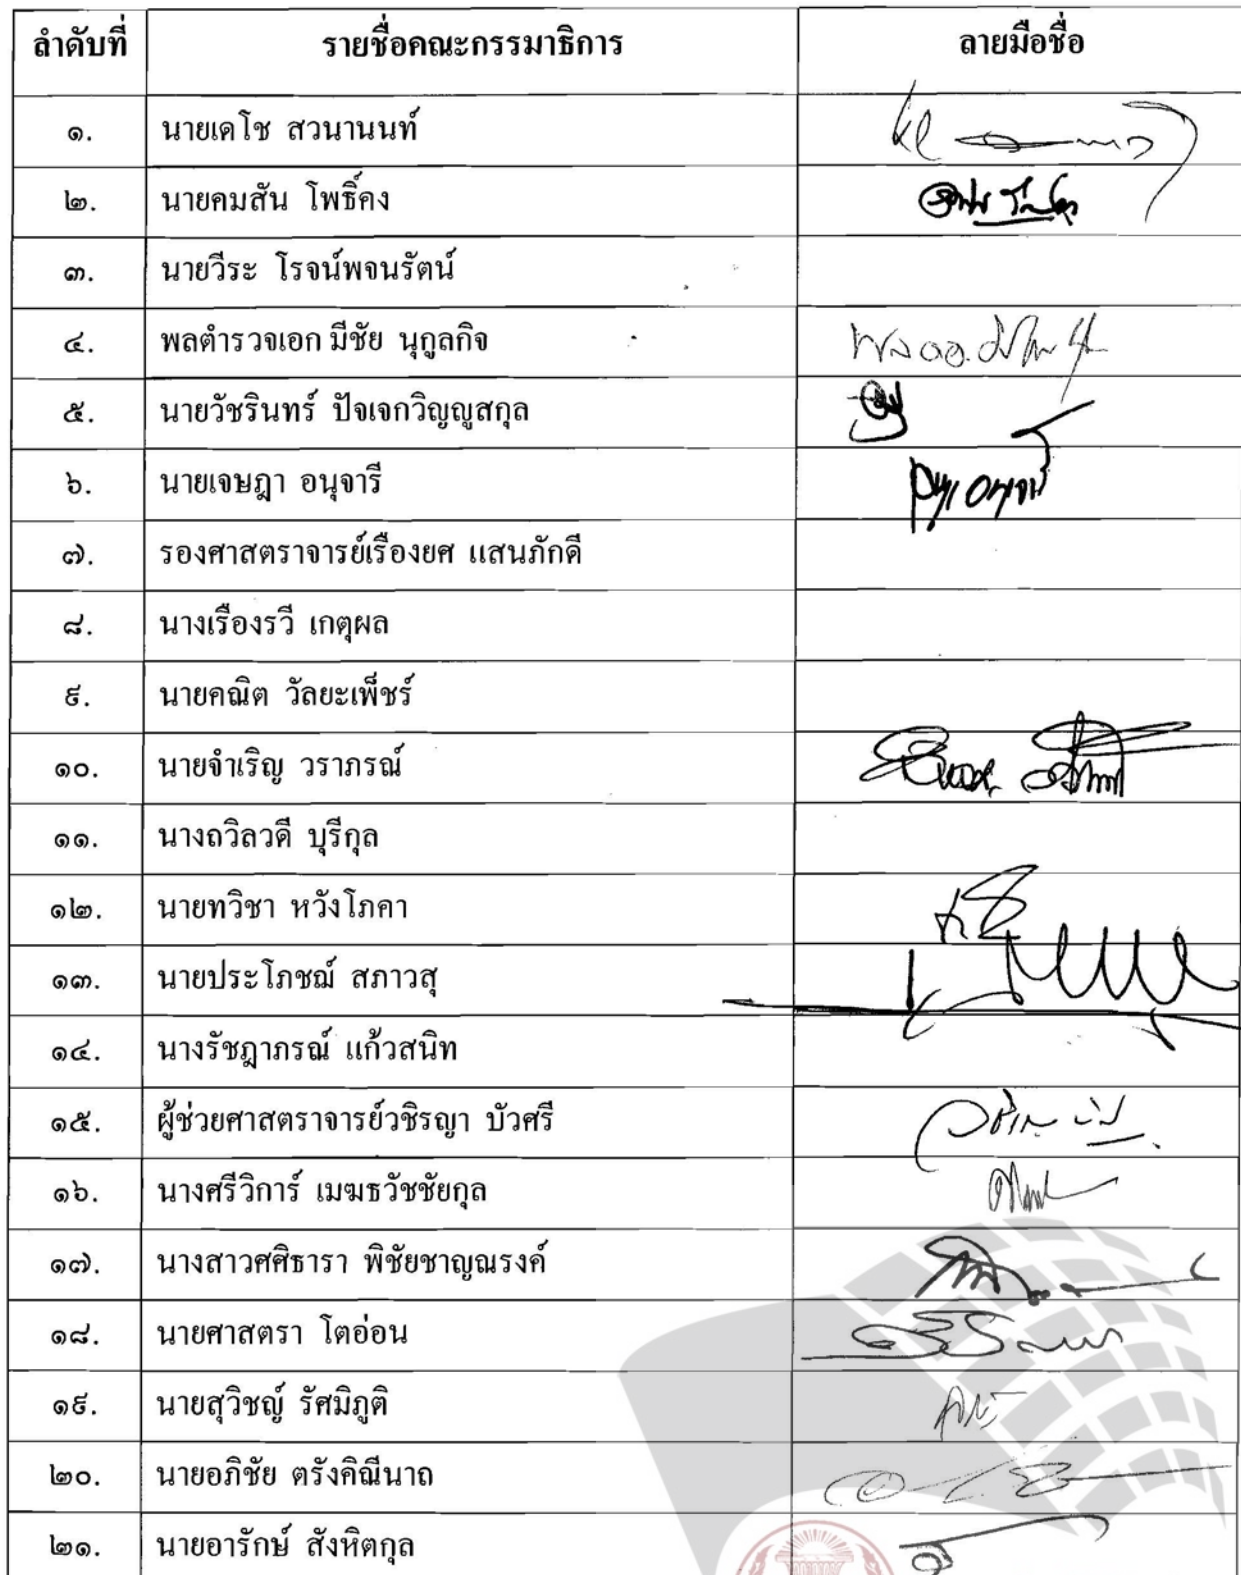 ลำดับที่ รายชื่อคณะกรรมาธิการ ลายมือชื่อ
๑. นายเดโช สวนานนท์
๒. นายคมสัน โพธิ์คง
๓. นายวีระ โรจน์พจนรัตน์
๔. พลตำรวจเอก มีชัย นุกูลกิจ
๕. นายวัชรินทร์ ปัจเจกวิญญูสกุล
๖. นายเจษฎา อนุจารี
๗. รองศาสตราจารย์เรืองยศ แสนภักดี
๘. นางเรืองรวี เกตุผล
๙. นายคณิต วัลยะเพ็ชร์
๑๐. นายจำเริญ วราภรณ์
๑๑. นางถวิลวดี บุรีกุล
๑๒. นายทวิชา หวังโภคา
๑๓. นายประโภชฌ์ สภาวสุ
๑๔. นางรัชฎาภรณ์ แก้วสนิท
๑๕. ผู้ช่วยศาสตราจารย์วชิรญา บัวศรี
๑๖. นางศรีวิการ์ เมฆธวัชชัยกุล
๑๗. นางสาวศศิธารา พิชัยชาญณรงค์
๑๘. นายศาสตรา โตอ่อน
๑๙. นายสุวิชญ์ รัศมิภูติ
๒๐. นายอภิชัย ตรังคิณีนาถ
๒๑. นายอารักษ์ สังหิตกุล